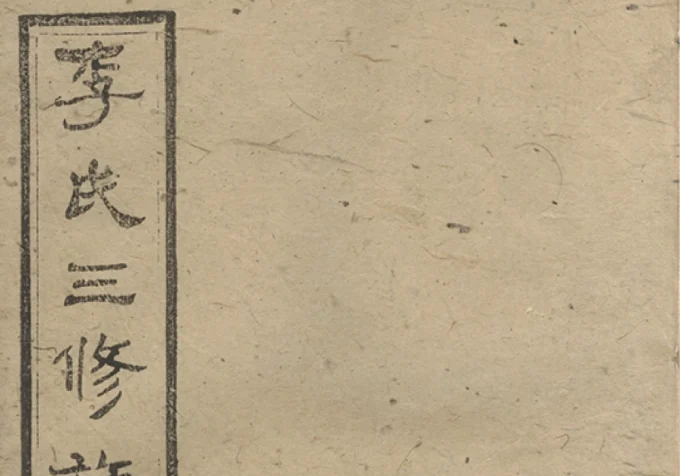 李氏三修